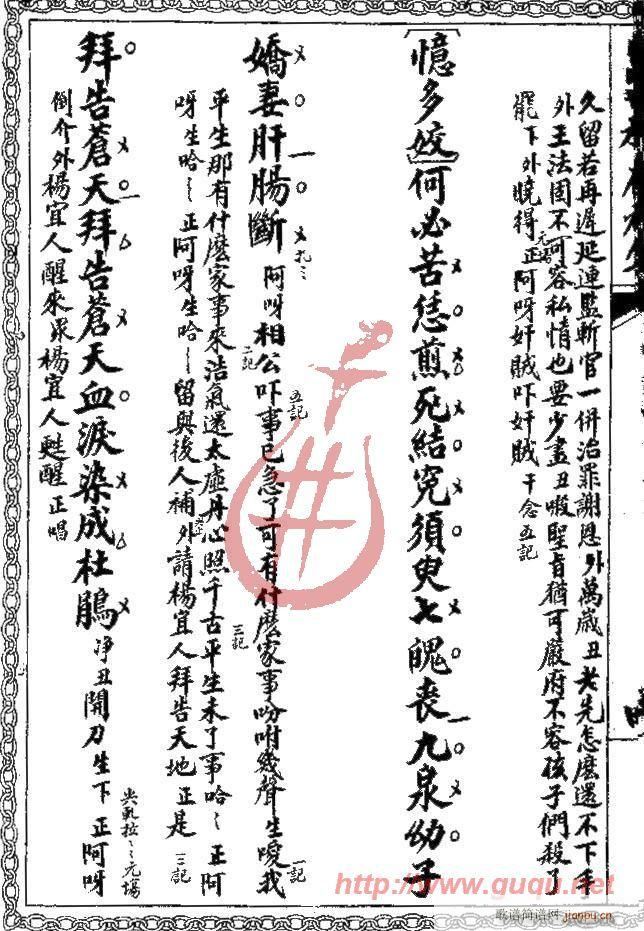 久留若再遲延連監斬官一併治罪謝恩外萬歲丑老先怎麼還不下手
外王法固不可容私情也要少盡丑嗄聖旨猶可嚴府不容孩子們殺了
罷下外曉得正阿呀奸賊吓奸賊干念五記
元場
〔憶多姣〕何必苦恁煎死結冤須臾七魄喪九泉幼子
嬌妻肝腸斷阿呀相公吓事已急了可有什麼家事吩咐幾聲生噯我
扎〻
五記
一記
平生那有什麼家事來浩氣還太虛丹心照千古平生未了事哈〻正阿
二記
三記
呀生哈〻正阿呀生哈〻留與後人補外請楊宜人拜告天地正是
三記
拜告蒼天拜告蒼天血淚染成杜鵑淨丑開刀生下正阿呀
倒介外楊宜人醒來眾楊宜人甦醒正唱
http://www.guqu.net
歌谱简谱网
jianpu.cn